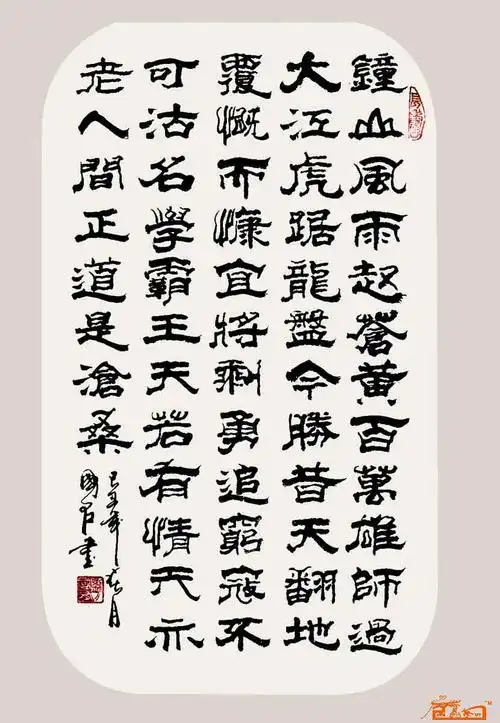 鐘山風雨起蒼黃百萬雄師過
大江虎踞龍盤今勝昔天翻地
覆慨而慷宜將剩勇追窮寇不
可沽名學霸王天若有情天亦
老人間正道是滄桑